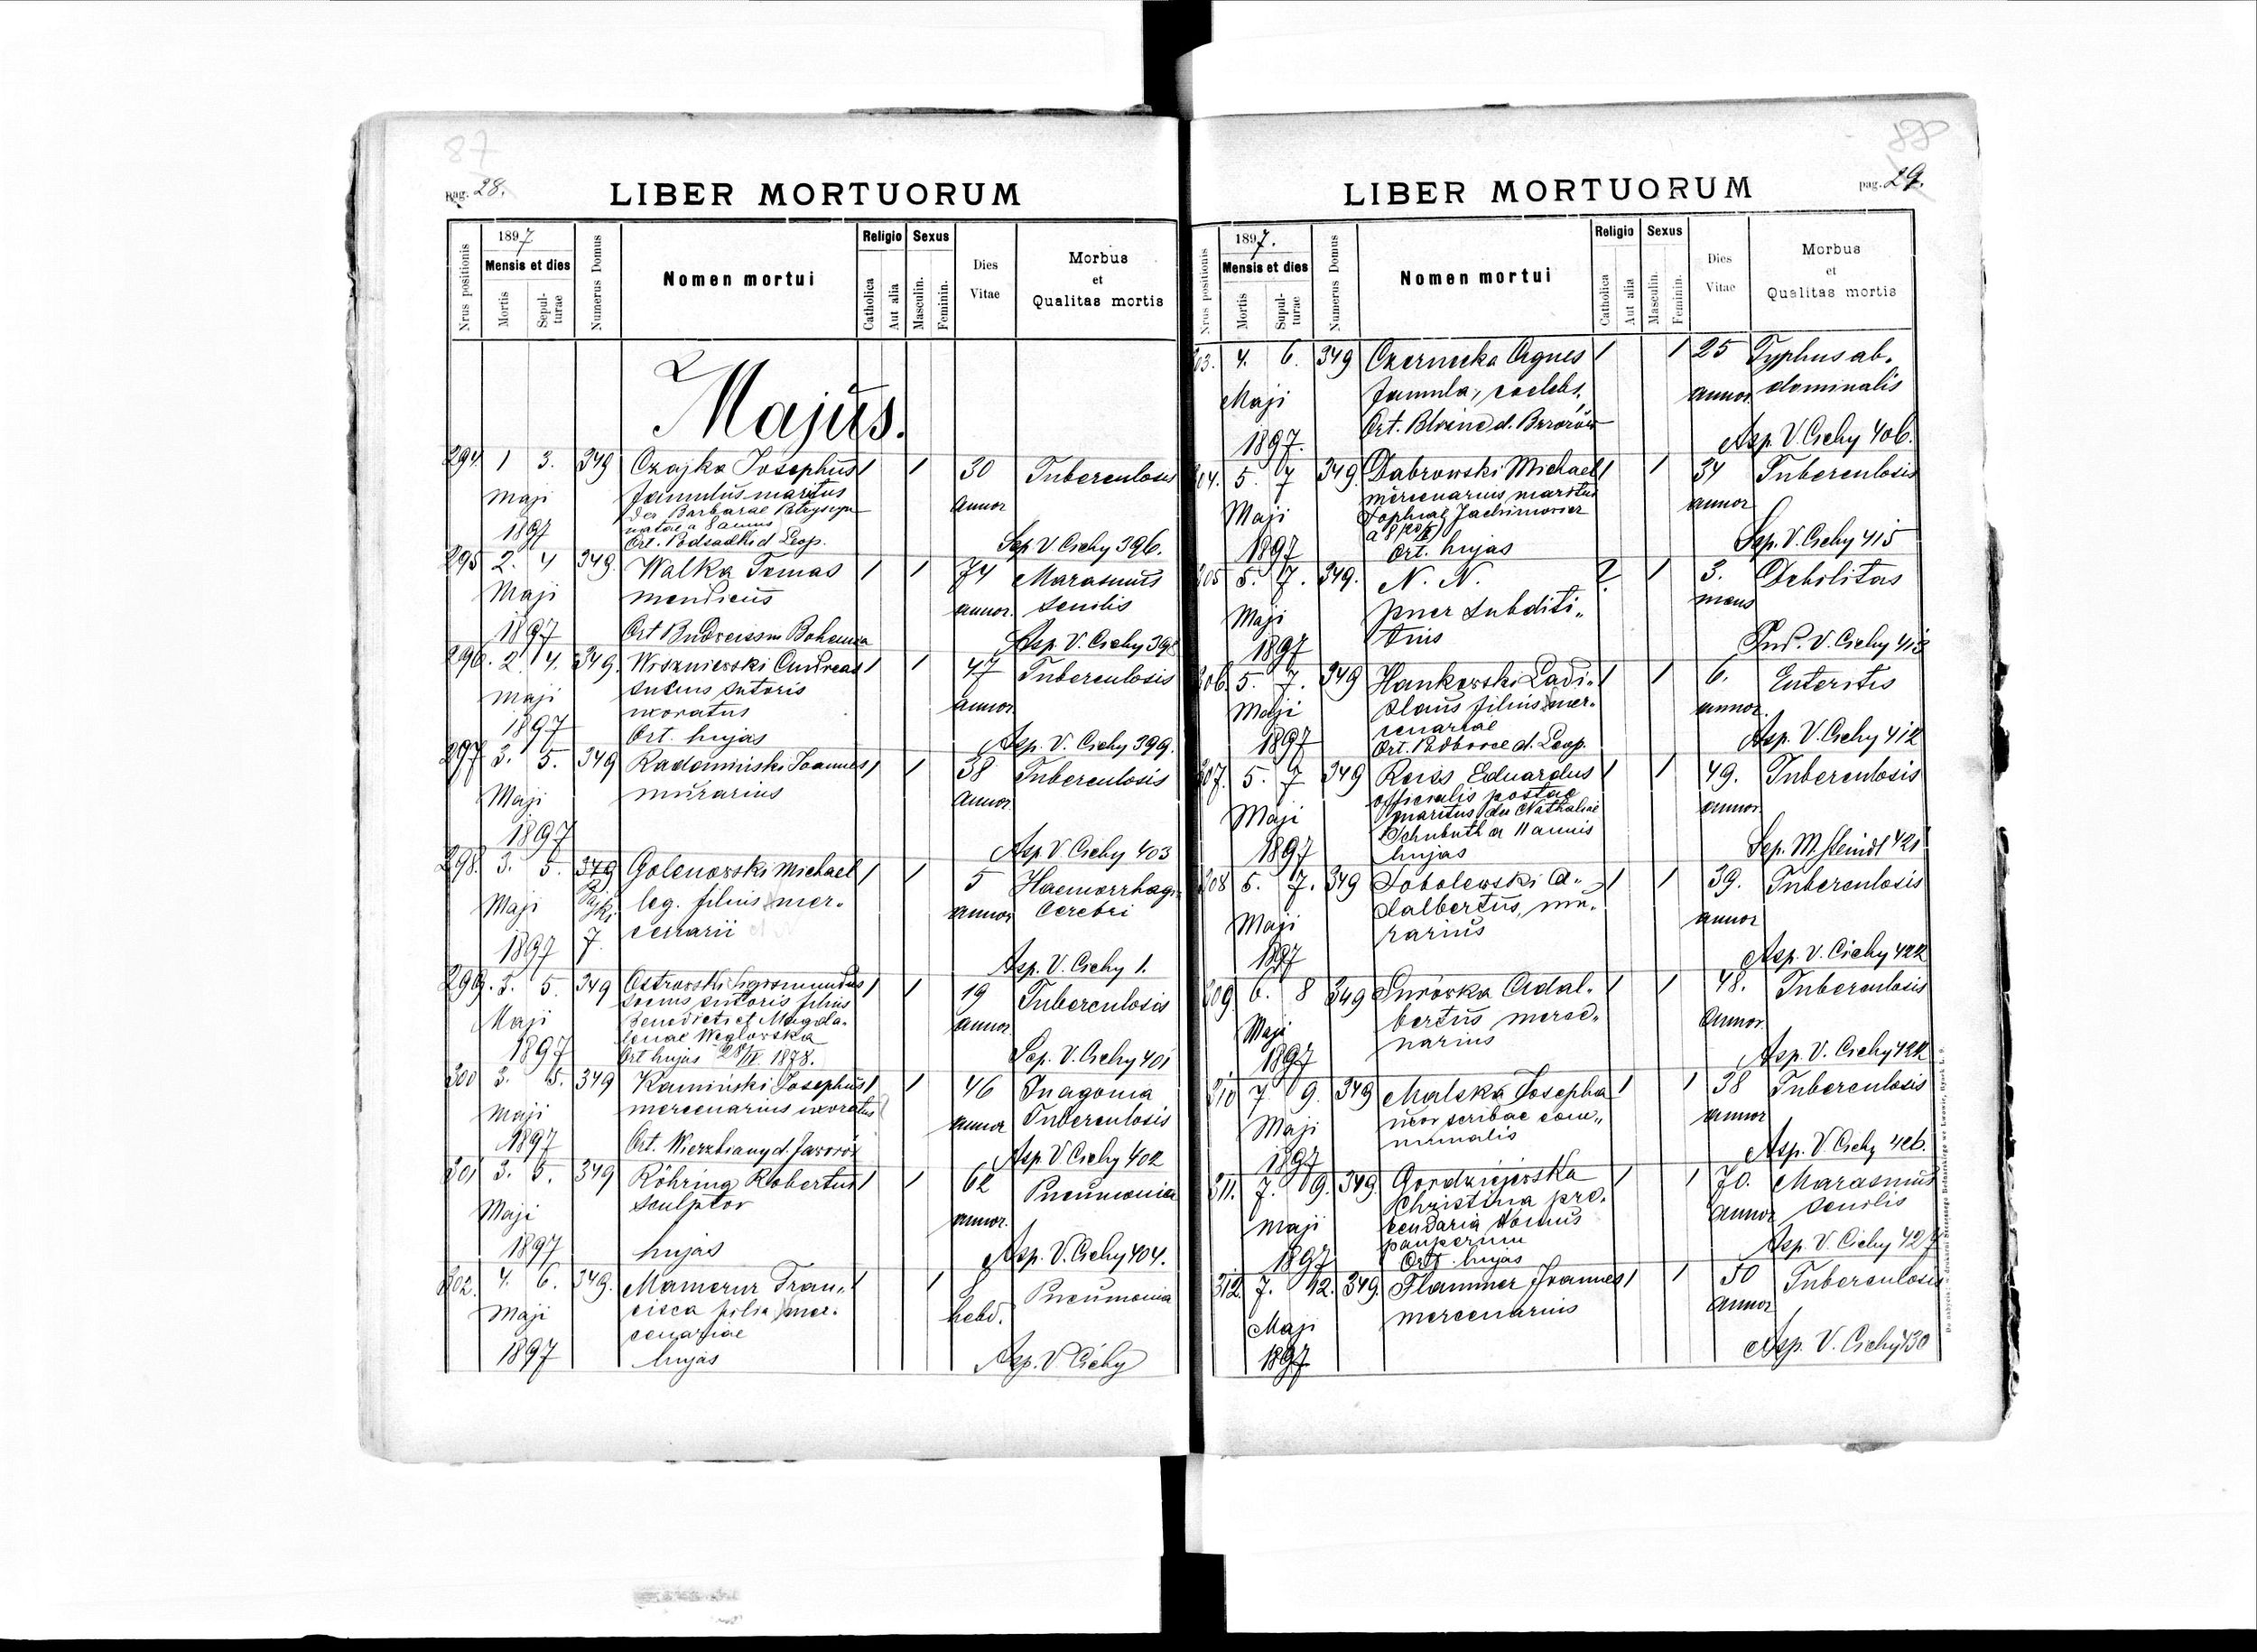 87
pag. 28.
LIBER MORTUORUM
Nrus positionis
1897
Mensis et dies
Mortis
Sepul-
turae
Numerus Domus
Nomen mortui
Religio
Catholica
Aut alia
Sexus
Masculin.
Feminin.
Dies
Vitae
Morbus
et
Qualitas mortis
Majus.
294 1 3. 349 Czajka Josephus 1 1 30 Tuberculosis
Maji famulus maritus annor
der Barbarae
1897 natae a 8 annis
Ort. Podsadki d Leop. Sep V Cichy 396.
295 2. 4 349. Walka Tomas 1 1 74 Marasmus
Maji mendicus annor. senilis
1897 Ort Budweissu Bohemia Asp. V. Cichy 398
296. 2. 4. 349. Wiszniewski Andreas 1 1 47 Tuberculosis
Maji socius sutoris annor
1897 uxoratus
Ort. hujas Asp. V. Cichy 399.
297 3. 5. 349 Radominski Joannes 1 1 38 Tuberculosis
Maji murarius annor
1897 Asp V Cichy 403
298. 3. 5. 349 Golenowski Michael 1 1 5 Haemorrhagia
Maji leg. filius mer- annor Cerebri
1897 7. cenarii
Asp. V. Cichy 1.
299. 3. 5. 349 Ostrowski Sigismundus 1 1 19 Tuberculosis
Maji socius sutoris filius annor
Benedicti et Magda-
1897 lenae Weglowska
Ort hujas 28/IV 1878. Sep. V. Cichy 401
300 3. 5. 349 Kaminski Josephus 1 1 46 In agonia
Maji mercenarius uxoratus annor Tuberculosis
1897 Ort. Wierzbiany d. Jaworów Asp. V Cichy 402
301 3. 5. 349 Röhring Robertus 1 1 62 Pneumonia
Maji sculptor annor.
1897 hujas Asp. V. Cichy 404.
302. 4. 6. 349. Mamerur Fran- 1 1 Pneumonia
Maji cisca filia mer- hebd.
cenariae
1897 hujas Asp. V Cichy
88
pag. 29.
LIBER MORTUORUM
Nrus positionis
1897.
Mensis et dies
Mortis
Sepul-
turae
Numerus Domus
Nomen mortui
Religio
Catholica
Aut alia
Sexus
Masculin.
Feminin.
Dies
Vitae
Morbus
et
Qualitas mortis
303. 4. 6. 349 Czernecka Agnes 1 1 25 Typhus ab-
Maji famula, coelebs, annor. dominalis
1897. Ort. d. Asp. V. Cichy 406.
304. 5. 7 349. Dabrowski Michael 1 1 34 Tuberculosis
Maji mercenarius maritus annor
Sophiae Jachimowicz
1897 Ort. hujas Sep. V. Cichy 415
305 5. 7. 349. N. N. ? 1 3. Debilitas
Maji puer subditi- mens
1897 tius V. Cichy 413
306. 5. 7. 349 Hankowski Ladi- 1 1 6. Enteritis
Maji slaus filius mer- annor.
cenariae
1897 Ort. Podborce d. Leop. Asp. V. Cichy 412
307. 5. 7 349 Reiss Eduardus 1 1 49. Tuberculosis
officialis postae annor
Maji maritus der Nathaliae
Schubuth a 11 annis
1897 hujas Sep. M. Steindl 421
308 5. 7. 349 Sobolewski A- 1 1 39. Tuberculosis
Maji dalbertus, mu- annor
1897 rarius Asp. V. Cichy 422
309. 6. 8 349 Surówka Adal- 1 1 48. Tuberculosis
Maji bertus merce- Annor.
1897 narius Asp. V. Cichy 424
310 7. 9. 349 Malska Josepha 1 1 38 Tuberculosis
Maji uxor scribae com- annor
1897 munalis Asp. V. Cichy 426.
311. 7. 9. 349. Gordziejewska 1 1 70. Marasmus
Maji Christina pre- annor senilis
bendaria domus
pauperum
1897 Ort. hujas Asp. V. Cichy 427
312. 7. 12. 349. Flammer Joannes 1 1 50 Tuberculosis
Maji mercenarius annor
1897 Asp. V. Cichy 430